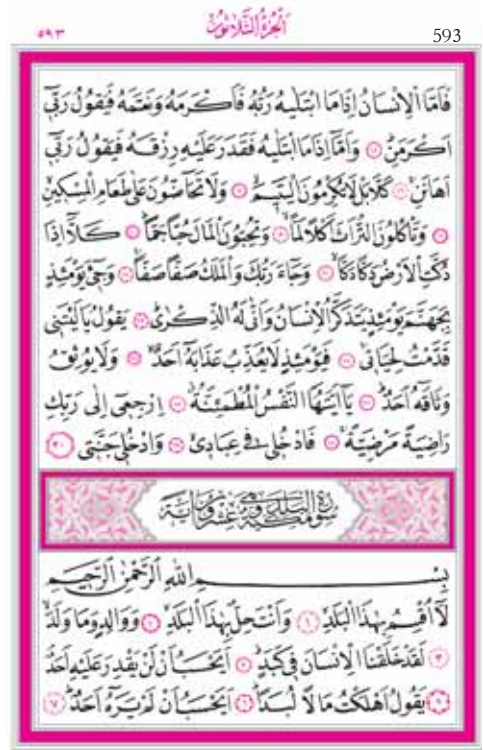 ٥٩٣ اَلْجُزْءُ الثَّلَاثُونَ 593
فَاَمَّا الْاِنْسَانُ اِذَا مَا ابْتَلٰيهُ رَبُّهُ فَاَكْرَمَهُ وَنَعَّمَهُ فَيَقُولُ رَبّٖٓي
اَكْرَمَنِ ١٥ وَاَمَّٓا اِذَا مَا ابْتَلٰيهُ فَقَدَرَ عَلَيْهِ رِزْقَهُ فَيَقُولُ رَبّٖٓي
اَهَانَنِ ١٦ كَلَّا بَلْ لَا تُكْرِمُونَ الْيَتٖيمَ ١٧ وَلَا تَحَٓاضُّونَ عَلٰى طَعَامِ الْمِسْكٖينِ
١٨ وَتَأْكُلُونَ التُّرَاثَ اَكْلًا لَمًّا ١٩ وَتُحِبُّونَ الْمَالَ حُبًّا جَمًّا ٢٠ كَلَّٓا اِذَا
دُكَّتِ الْاَرْضُ دَكًّا دَكًّا ٢١ وَجَٓاءَ رَبُّكَ وَالْمَلَكُ صَفًّا صَفًّا ٢٢ وَجٖٓيءَ يَوْمَئِذٍ
بِجَهَنَّمَ يَوْمَئِذٍ يَتَذَكَّرُ الْاِنْسَانُ وَاَنّٰى لَهُ الذِّكْرٰى ٢٣ يَقُولُ يَا لَيْتَنٖي
قَدَّمْتُ لِحَيَاتٖي ٢٤ فَيَوْمَئِذٍ لَا يُعَذِّبُ عَذَابَهُٓ اَحَدٌ ٢٥ وَلَا يُوثِقُ
وَثَاقَهُٓ اَحَدٌ ٢٦ يَٓا اَيَّتُهَا النَّفْسُ الْمُطْمَئِنَّةُ ٢٧ اِرْجِعٖٓي اِلٰى رَبِّكِ
رَاضِيَةً مَرْضِيَّةً ٢٨ فَادْخُلٖي فٖي عِبَادٖي ٢٩ وَادْخُلٖي جَنَّتٖي ٣٠
سُورَةُ الْبَلَدِ مَكِّيَّةٌ وَهِيَ عِشْرُونَ اٰيَةً
بِسْمِ اللّٰهِ الرَّحْمٰنِ الرَّحٖيمِ
لَٓا اُقْسِمُ بِهٰذَا الْبَلَدِ ١ وَاَنْتَ حِلٌّ بِهٰذَا الْبَلَدِ ٢ وَوَالِدٍ وَمَا وَلَدَ
٣ لَقَدْ خَلَقْنَا الْاِنْسَانَ فٖي كَبَدٍ ٤ اَيَحْسَبُ اَنْ لَنْ يَقْدِرَ عَلَيْهِ اَحَدٌ
٥ يَقُولُ اَهْلَكْتُ مَالًا لُبَدًا ٦ اَيَحْسَبُ اَنْ لَمْ يَرَهُٓ اَحَدٌ ٧